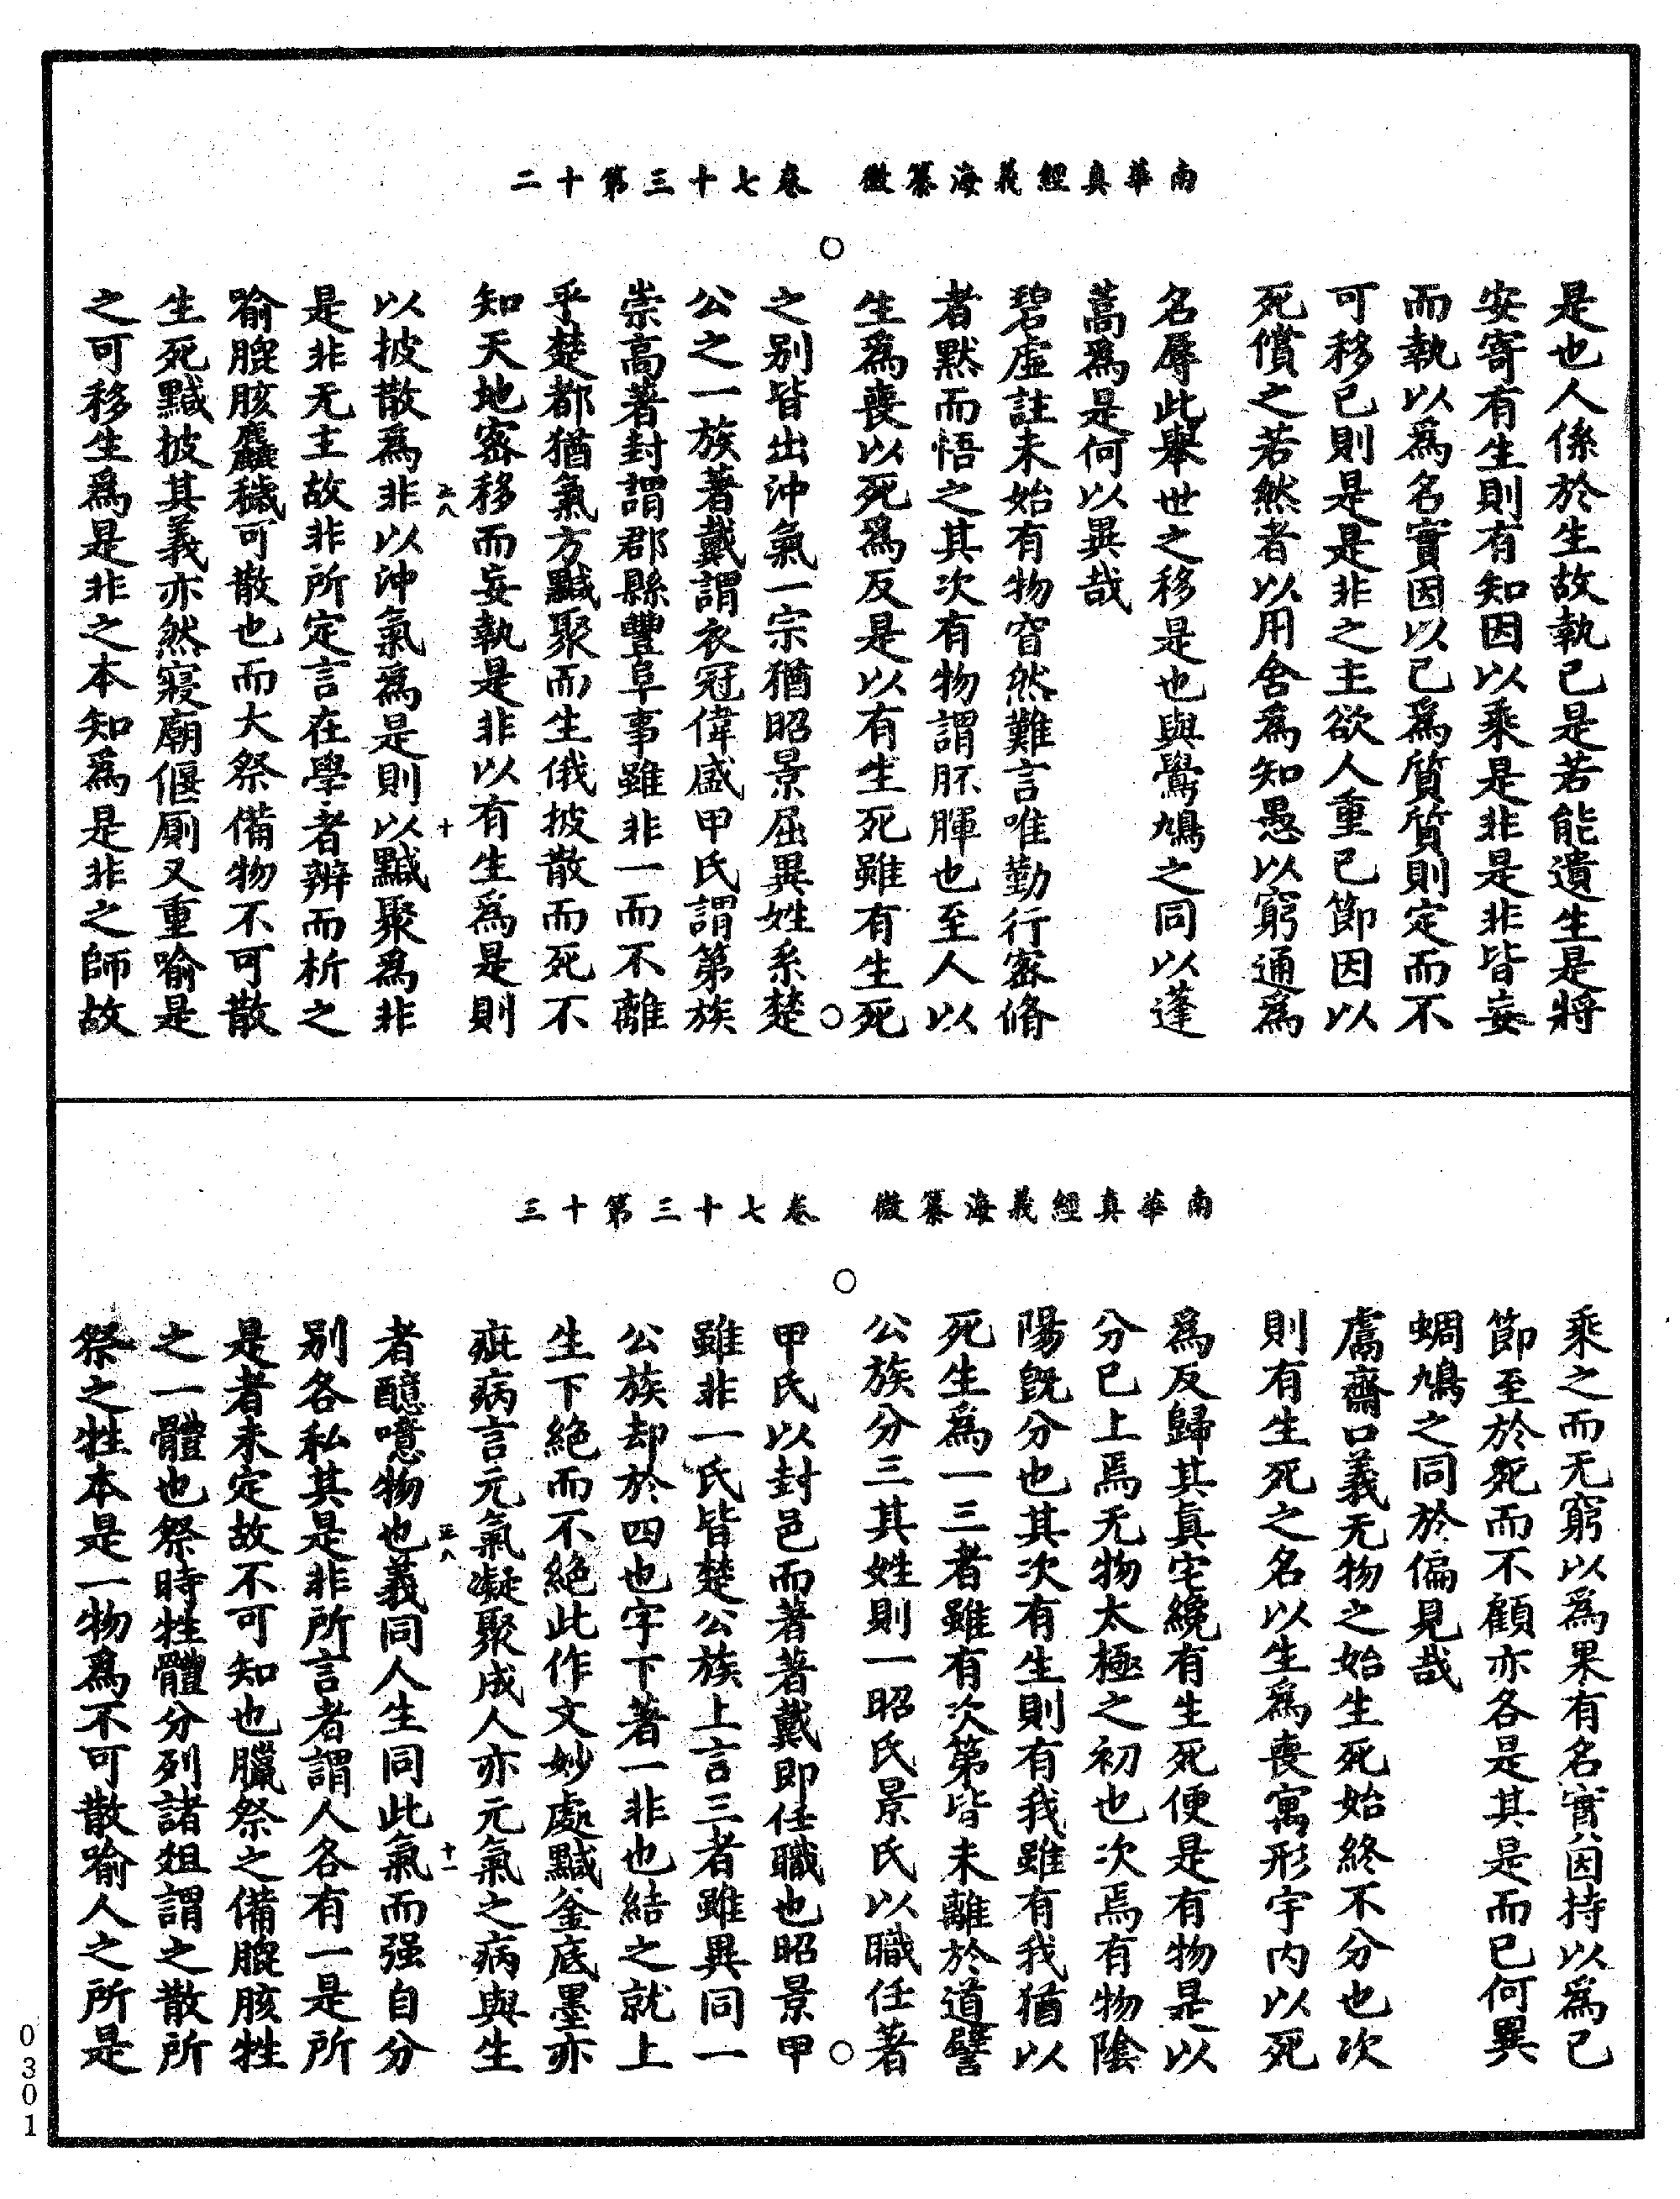 南華真經義海纂微　卷七十三第十二
是也人係於生故執己是若能遺生是將
安寄有生則有知因以乘是非是非皆妄
而執以爲名實因以己爲質質則定而不
可移己則是是非之主欲人重己節因以
死償之若然者以用舍爲知愚以窮通爲
名辱此舉世之移是也與鷽鳩之同以蓬
蒿爲是何以異哉
碧虛註未始有物窅然難言唯勤行密脩
者默而悟之其次有物謂胚腪也至人以
生爲喪以死爲反是以有生死雖有生死
之别皆出沖氣一宗猶昭景屈異姓系楚
公之一族著戴謂衣冠偉盛甲氏謂第族
崇高著封謂郡縣豐阜事雖非一而不離
乎楚都猶氣方黬聚而生俄披散而死不
知天地密移而妄執是非以有生爲是則
以披散爲非以沖氣爲是則以黬聚爲非
是非无主故非所定言在學者辨而析之
喻膍胲麤穢可散也而大祭備物不可散
生死黬披其義亦然寢廟偃厠又重喻是
之可移生爲是非之本知爲是非之師故
南華真經義海纂微　卷七十三第十三
乘之而无窮以爲果有名實因持以爲己
節至於死而不顧亦各是其是而已何異
蜩鳩之同於偏見哉
鬳齋口義无物之始生死始終不分也次
則有生死之名以生爲喪寓形宇内以死
爲反歸其真宅纔有生死便是有物是以
分已上焉无物太極之初也次焉有物隂
陽旣分也其次有生則有我雖有我猶以
死生爲一三者雖有次第皆未離於道譬
公族分三其姓則一昭氏景氏以職任著
甲氏以封邑而著著戴即任職也昭景甲
雖非一氏皆楚公族上言三者雖異同一
公族却於四也字下著一非也結之就上
生下絶而不絶此作文妙處黬釜底墨亦
疵病言元氣凝聚成人亦元氣之病與生
者醷噫物也義同人生同此氣而强自分
别各私其是非所言者謂人各有一是所
是者未定故不可知也臘祭之備膍胲牲
之一體也祭時牲體分列諸俎謂之散所
祭之牲本是一物爲不可散喻人之所是
0301